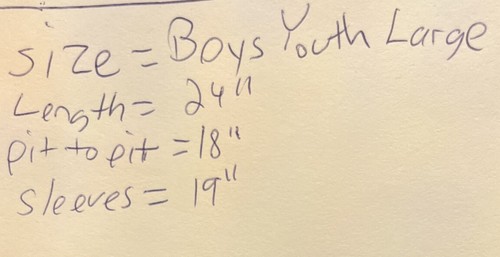 Size = Boys Youth Large
Length = 24"
pit to pit = 18"
sleeves = 19"